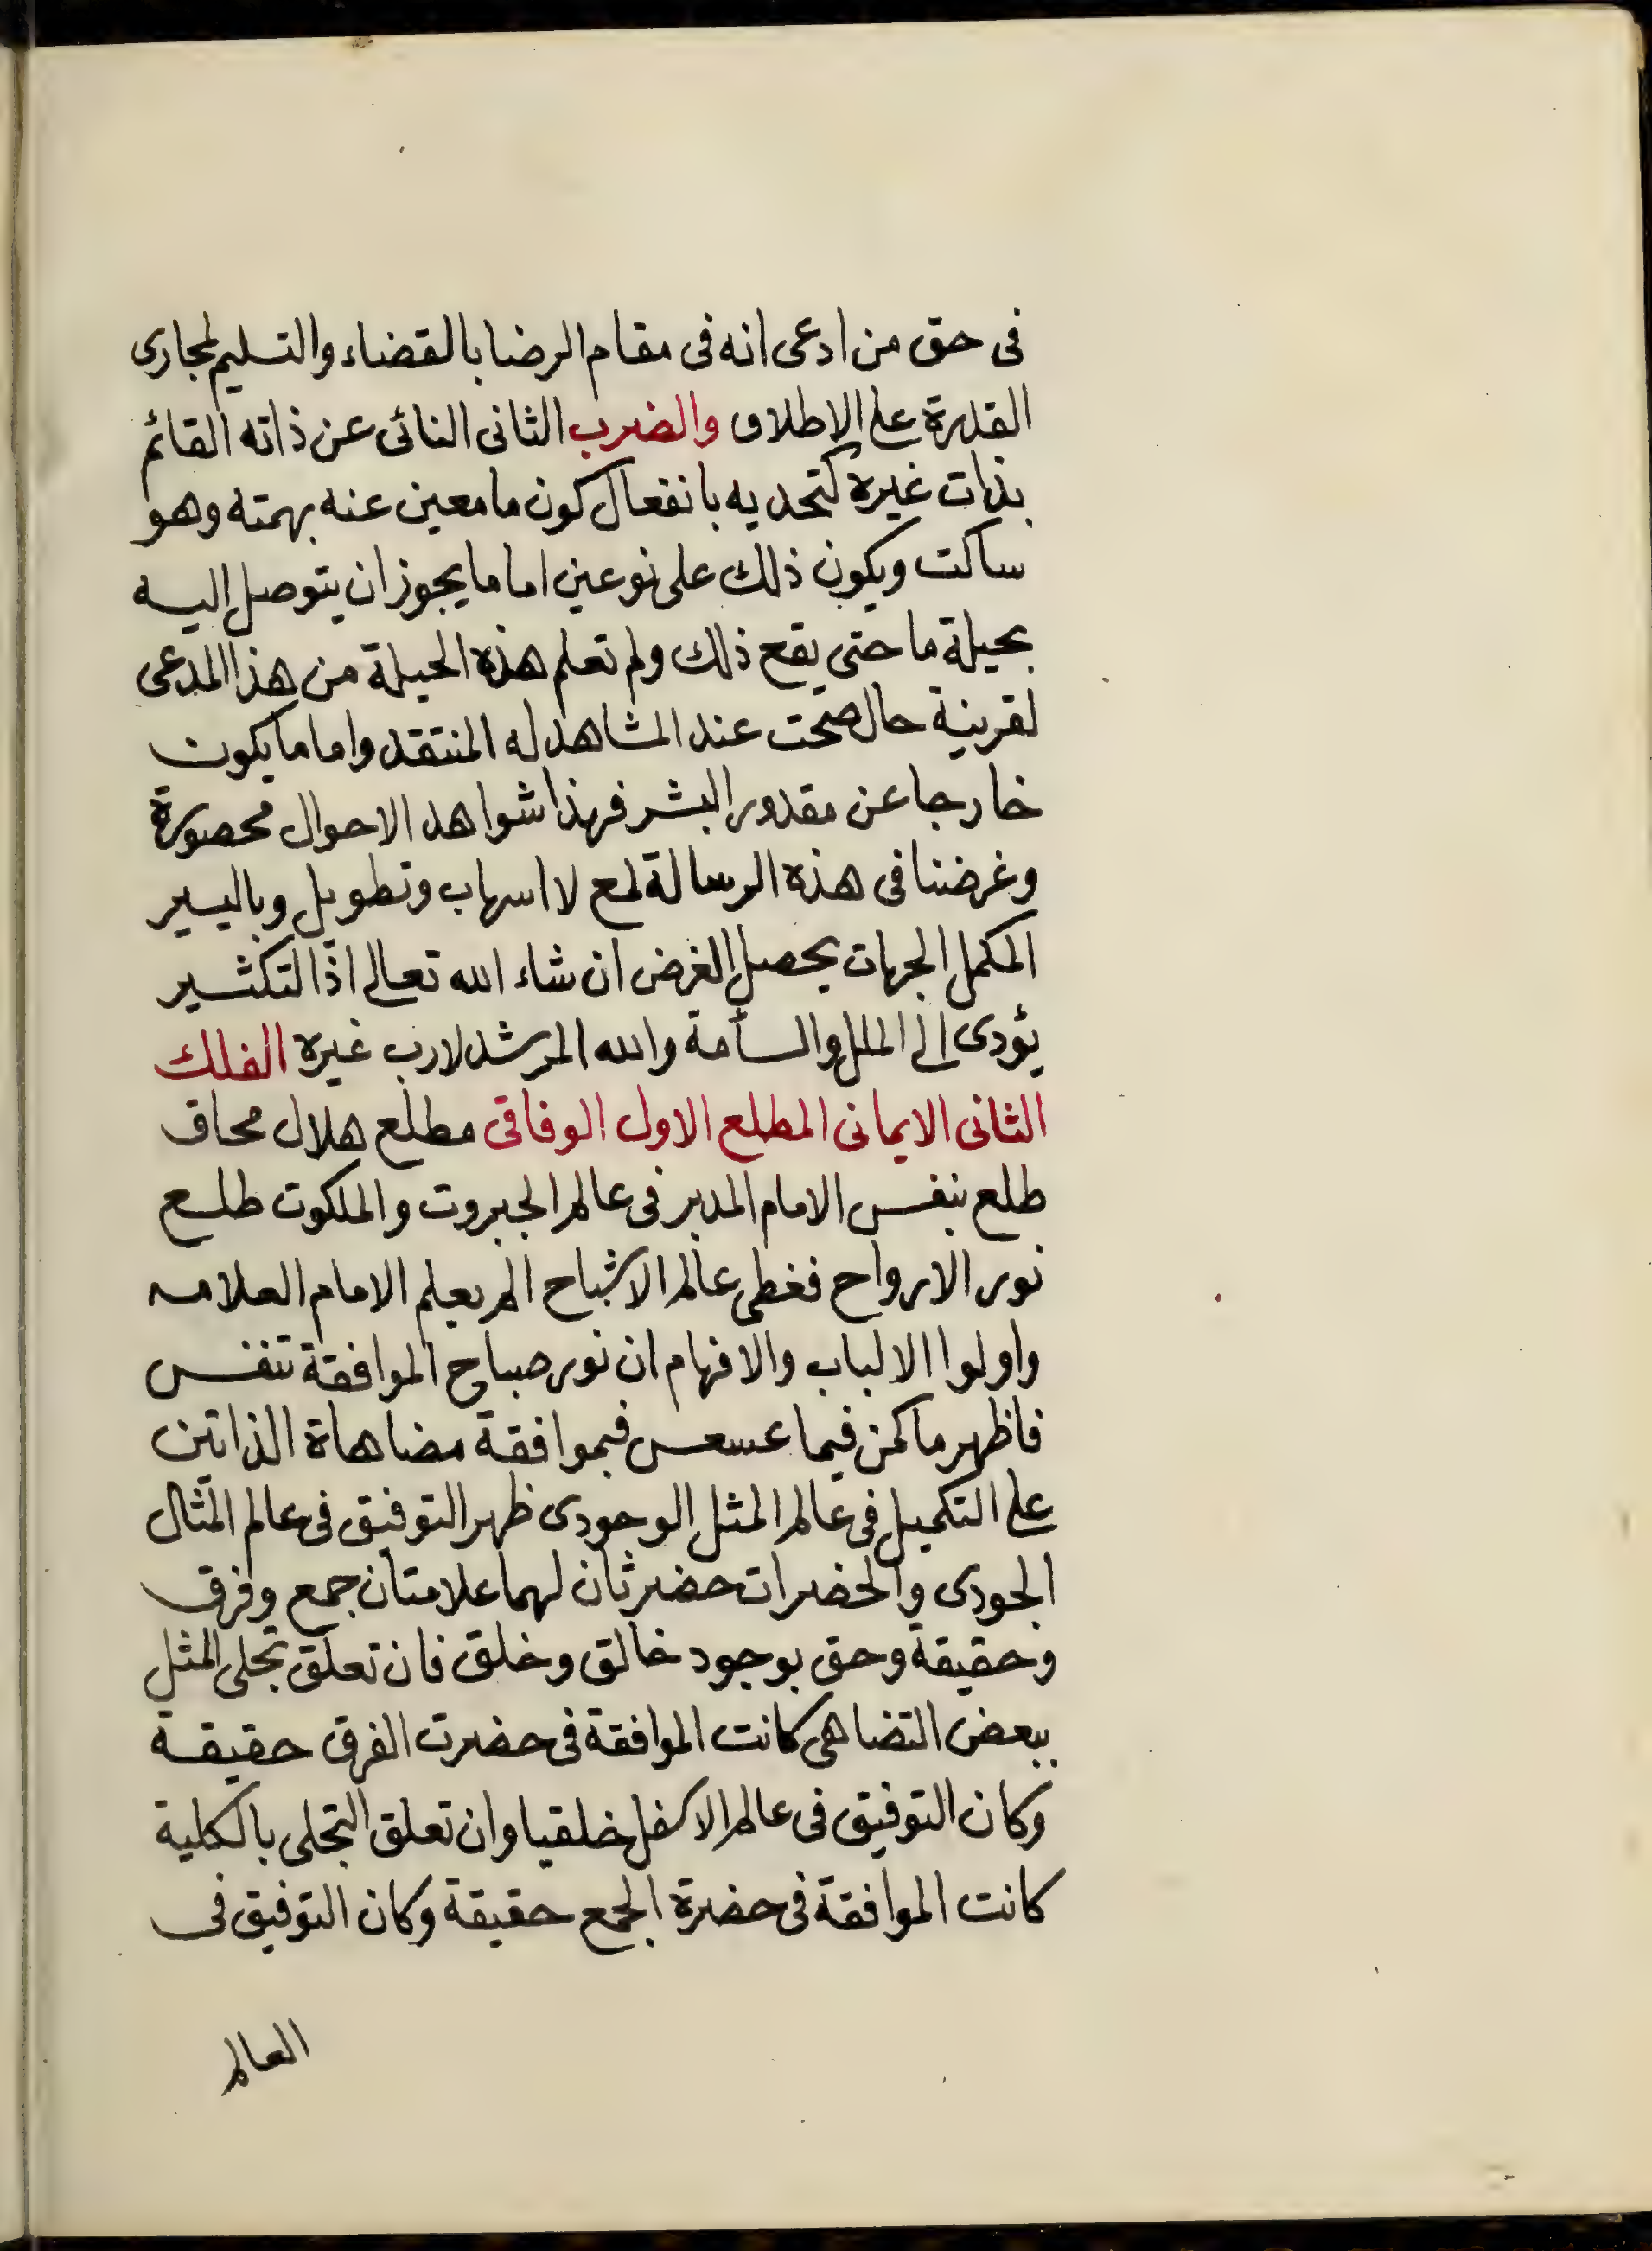 فى حق من ادعى انه فى مقام الرضا بالقضاء والتسليم لمجارى
القدرة على الاطلاق والضرب الثانى النائى عن ذاته القائم
بذات غيره كتحديه بانفعال كون ما معين عنه بهمته وهو
ساكت ويكون ذلك على نوعين اما ما يجوز ان يتوصل اليه
بحيلة ما حتى يقع ذلك ولم تعلم هذه الحيلة من هذا المدعى
لقرينة حال صحت عند المشاهد له المنتقد واما ما يكون
خارجا عن مقدور البشر فهذا شواهد الاحوال محصورة
وغرضنا فى هذه الرسالة لمع لا اسهاب وتطويل وباليسير
المكمل الجهات يحصل الغرض ان شاء الله تعالى اذ التكثير
يؤدى الى الملل والسأمة والله المرشد لارب غيره الفلك
الثانى الايمانى المطلع الاول الوفاقى مطلع هلال محاق
طلع بنفس الامام المدبر فى عالم الجبروت والملكوت طلع
نور الارواح فغطى عالم الاشباح الم يعلم الامام العلامه
واولوا الالباب والافهام ان نور صباح الموافقة تنفس
فاظهر ما كمن فيما عسعس فبموافقة مضاهاة الذاتين
على التكميل فى عالم المثل الوجودى ظهر التوفيق فى عالم المثال
الجودى والحضرات حضرتان لهما علامتان جمع وفرق
وحقيقة وحق بوجود خالق وخلق فان تعلق تجلى المثل
ببعض التضاهى كانت الموافقة فى حضرت الفرق حقيقة
وكان التوفيق فى عالم الاسفل خلقيا وان تعلق التجلى بالكلية
كانت الموافقة فى حضرة الجمع حقيقة وكان التوفيق فى
العالم